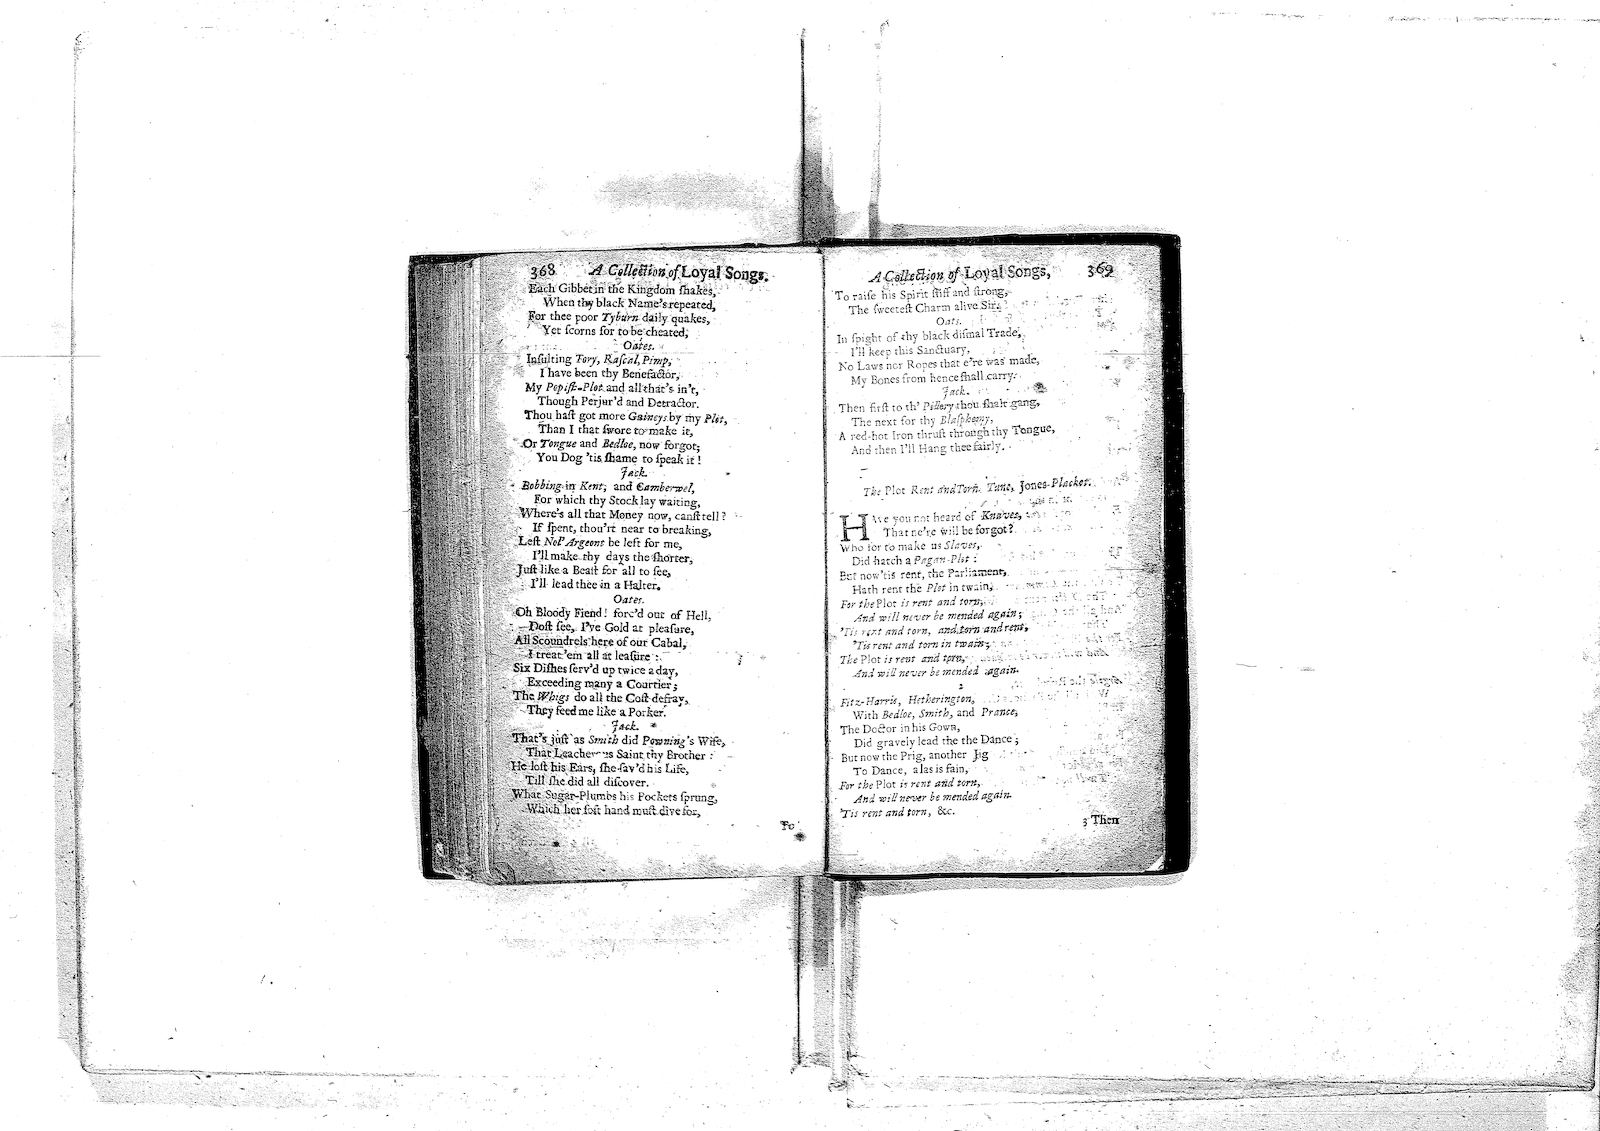 368 A Collection of Loyal Songs.
Each Gibbet in the Kingdom ſhakes,
When thy black Name's repeated,
For thee poor Tyburn daily quakes,
Yet ſcorns for to be cheated;
Oates.
Inſulting Tory, Raſcal, Pimp,
I have been thy Benefactor,
My Popiſt-Plot and all that's in't,
Though Perjur'd and Detractor.
Thou haſt got more Gaineys by my Plot,
Than I that ſwore to make it,
Or Tongue and Bedloe, now forgot;
You Dog 'tis ſhame to ſpeak it!
Jack.
Bobbing in Kent, and Camberwel,
For which thy Stock lay waiting,
Where's all that Money now, canſt tell?
If ſpent, thou'rt near to breaking,
Left Nol' Argeons be left for me,
I'll make thy days the ſhorter,
Juſt like a Beaſt for all to ſee,
I'll lead thee in a Halter.
Oates.
Oh Bloody Fiend! forc'd out of Hell,
Doſt ſee, I've Gold at pleaſure,
All Scoundrels here of our Cabal,
I treat 'em all at leaſure:
Six Diſhes ſerv'd up twice a day,
Exceeding many a Courtier;
The Whigs do all the Coſt defray,
They feed me like a Porker.
Jack.
That's juſt as Smith did Powning's Wife,
That Leacherous Saint thy Brother:
He loſt his Ears, ſhe ſav'd his Life,
Till ſhe did all diſcover.
What Sugar-Plumbs his Pockets ſprung,
Which her ſoft hand muſt dive for,
To
A Collection of Loyal Songs, 369
To raiſe his Spirit ſtiff and ſtrong,
The ſweeteſt Charm alive Sir.
Oats.
In ſpight of thy black diſmal Trade,
I'll keep this Sanctuary,
No Laws nor Ropes that e're was made,
My Bones from hence ſhall carry.
Jack.
Then firſt to th' Pillory thou ſhalt gang,
The next for thy Blaſphemy,
A red-hot Iron thruſt through thy Tongue,
And then I'll Hang thee fairly.
The Plot Rent and Torn. Tune, Jones-Placket.
HAve you not heard of Knaves,
That ne're will be forgot?
Who for to make us Slaves,
Did hatch a Pagan-Plot:
But now 'tis rent, the Parliament,
Hath rent the Plot in twain;
For the Plot is rent and torn,
And will never be mended again;
'Tis rent and torn, and torn and rent,
'Tis rent and torn in twain;
The Plot is rent and torn,
And will never be mended again.
2
Fitz-Harris, Hetherington,
With Bedloe, Smith, and Prance,
The Doctor in his Gown,
Did gravely lead the the Dance;
But now the Prig, another Jig
To Dance, alas is fain,
For the Plot is rent and torn,
And will never be mended again.
'Tis rent and torn, &c.
3 Then